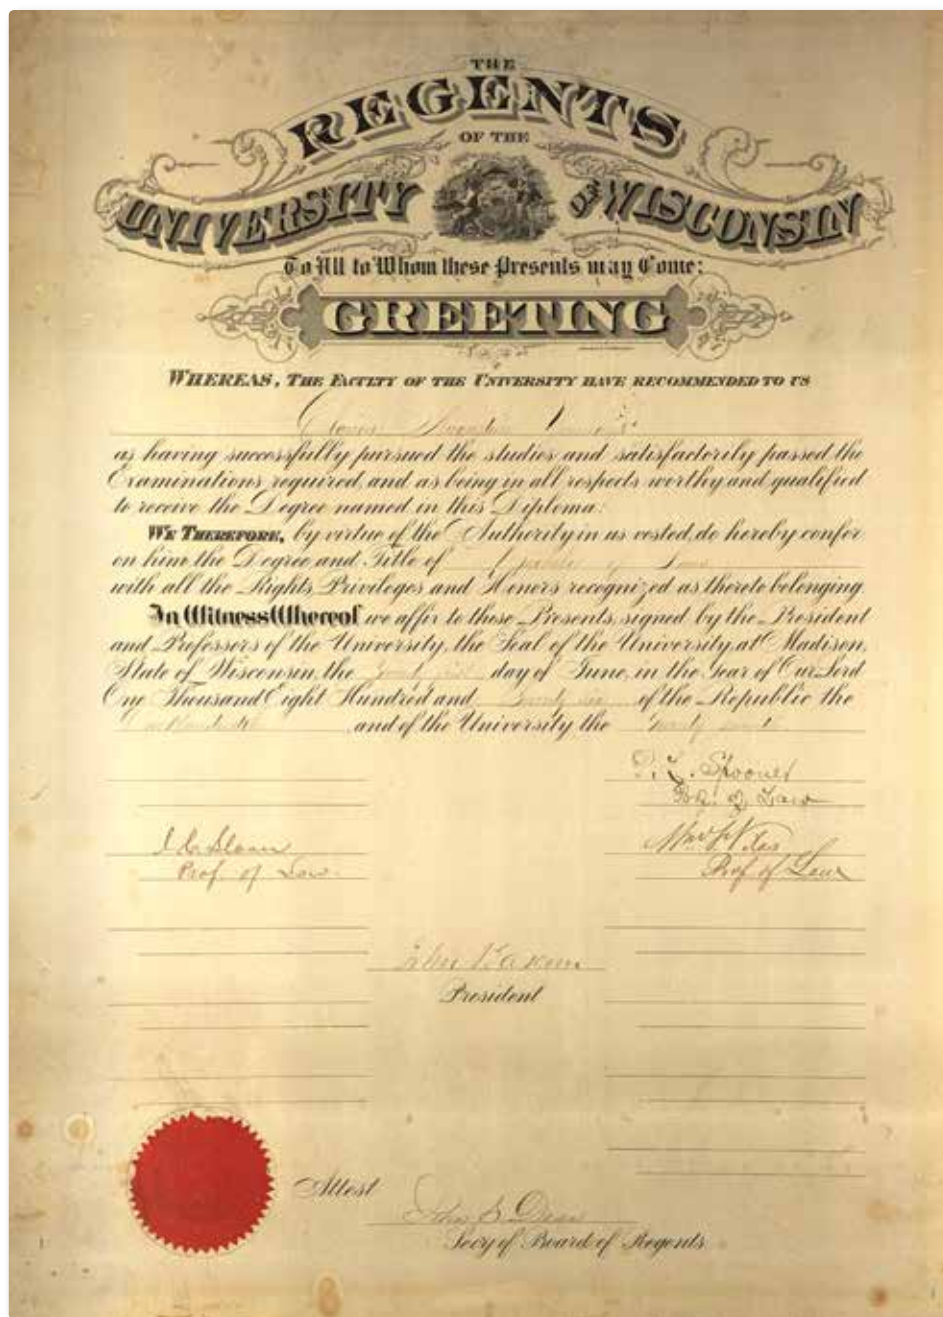 THE
REGENTS
OF THE
UNIVERSITY OF WISCONSIN
To All to Whom these Presents may Come:
GREETING
WHEREAS, THE FACULTY OF THE UNIVERSITY HAVE RECOMMENDED TO US
as having successfully pursued the studies and satisfactorily passed the
Examinations required and as being in all respects worthy and qualified
to receive the Degree named in this Diploma:
WE THEREFORE, by virtue of the Authority in us vested, do hereby confer
on him the Degree and Title of
with all the Rights Privileges and Honors recognized as thereto belonging.
In Witness Whereof we affix to these Presents, signed by the President
and Professors of the University, the Seal of the University, at Madison,
State of Wisconsin, the day of June, in the Year of Our Lord
One Thousand Eight Hundred and of the Republic the
and of the University the
Spooner
of Law
J. C. Sloan
Prof. of Law
Prof of Law
John Bascom
President
Attest
Secry of Board of Regents